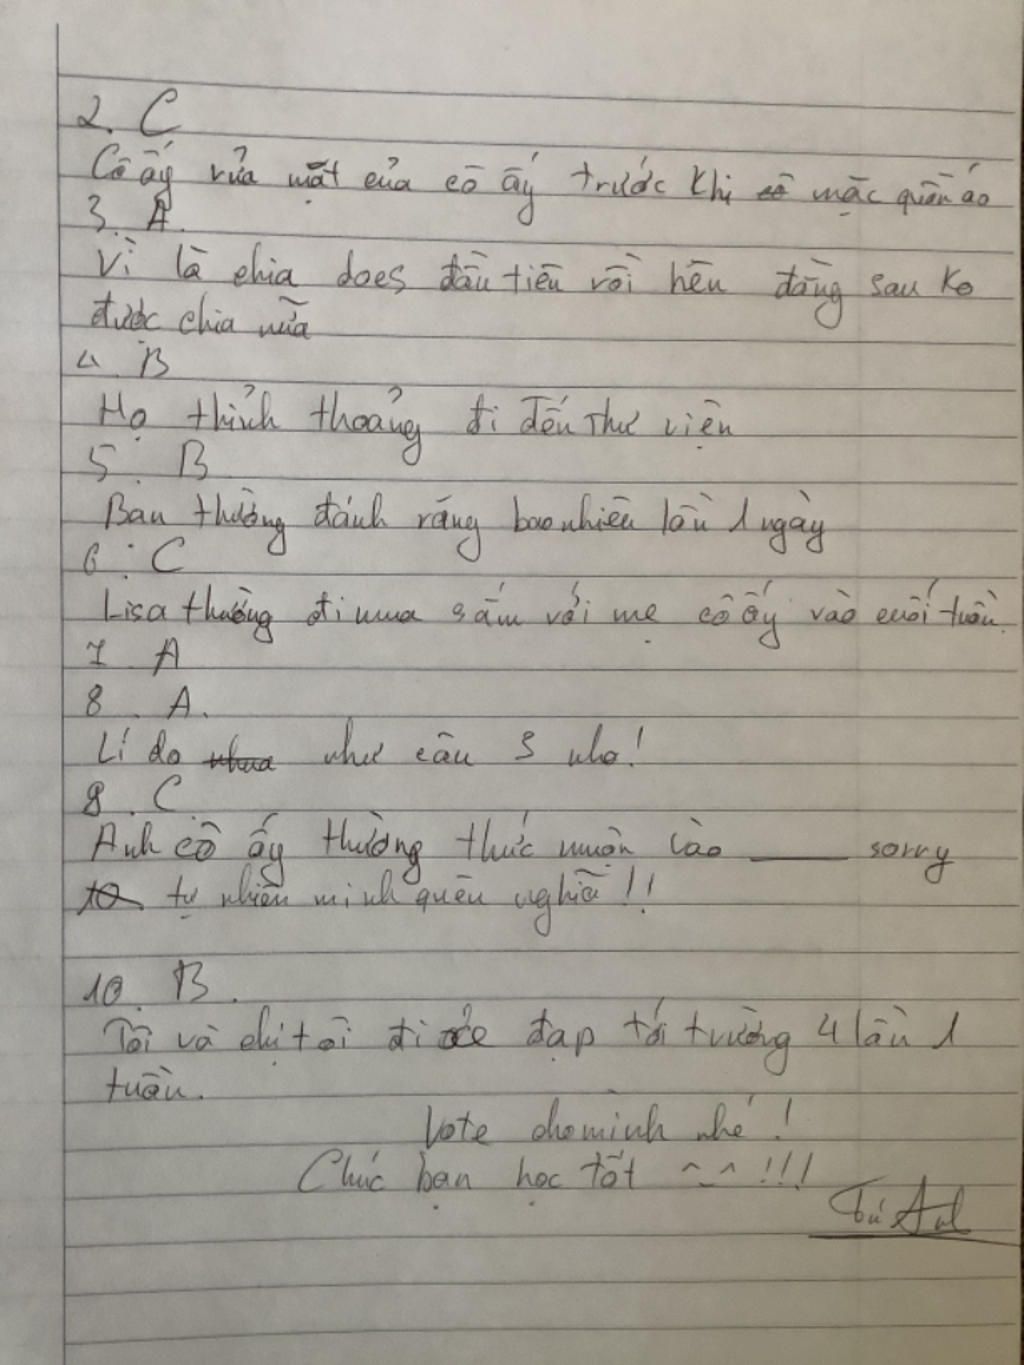 2. C
Cô ấy rửa mặt của cô ấy trước khi mặc quần áo
3. A.
Vì là chia does đầu tiên rồi nên đằng sau ko
được chia nữa
4 B
Họ thỉnh thoảng đi đến thư viện
5. B
Bạn thường đánh răng bao nhiêu lần 1 ngày
6. C
Lisa thường đi mua sắm với mẹ cô ấy vào cuối tuần.
7 A
8. A.
Lí do như câu 3 nha!
9. C
Anh cô ấy thường thức muộn vào ___ sorry
tự nhiên mình quên nghĩa!!
10. B.
Tôi và chị tôi đi xe đạp tới trường 4 lần 1
tuần.
Vote cho mình nhé!
Chúc bạn học tốt ^_^ !!!
Tú Anh